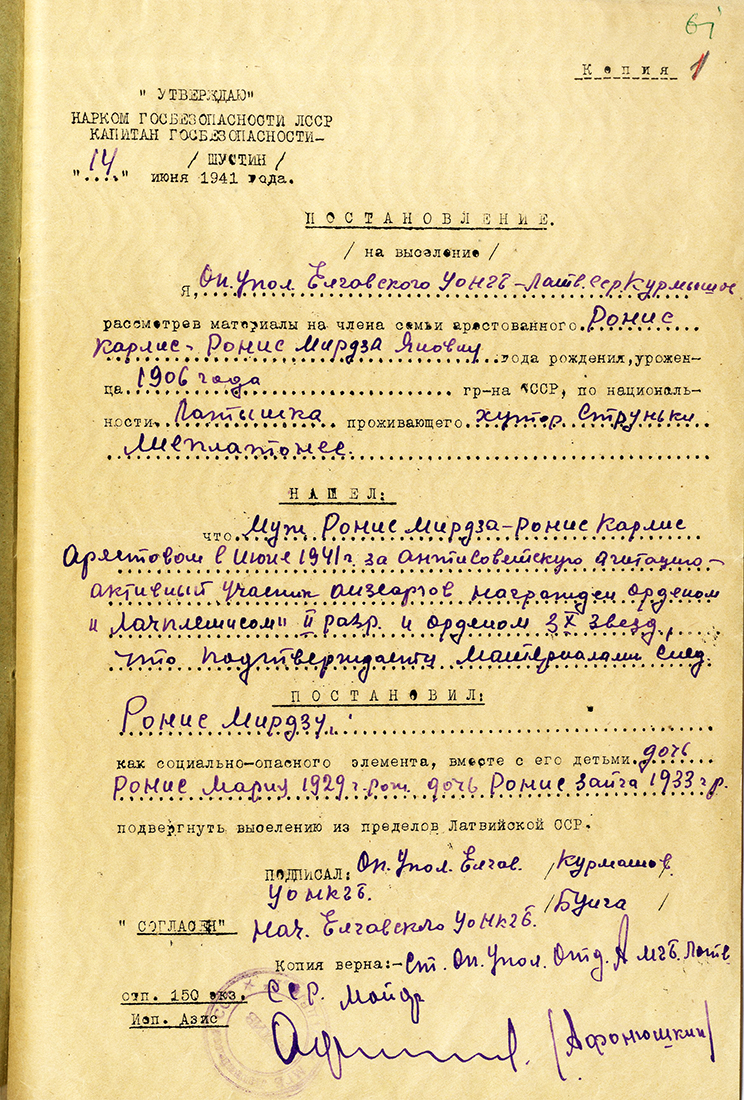 61
Копия 1
" УТВЕРЖДАЮ"
НАРКОМ ГОСБЕЗОПАСНОСТИ ЛССР
КАПИТАН ГОСБЕЗОПАСНОСТИ-
/ ШУСТИН /
"14" июня 1941 года.
ПОСТАНОВЛЕНИЕ.
/ на выселение /
Я, Оп. Упол. Елгавского УОНГБ-Латв. ССР Курмышов
рассмотрев материалы на члена семьи арестованного Ронис
Карлис - Ронис Мирдза Яновну года рождения, урожен-
ца 1906 года гр-на СССР, по националь-
ности Латышка проживающего хутор Струньки
НАШЕЛ:
что Муж Ронис Мирдза - Ронис Карлис
Арестован в Июне 1941 г за антисоветскую агитацию -
активный участник айзсаргов награжден орденом
"Лачплесисом" II разр. и орденом 3х звезд,
что подтверждается материалами след.
ПОСТАНОВИЛ:
Ронис Мирдзу,
как социально-опасного элемента, вместе с его детьми дочь
Ронис Мария 1929 г. рож. дочь Ронис Зайга 1933 г р.
подвергнуть выселению из пределов Латвийской ССР.
ПОДПИСАЛ: Оп. Упол. Елгав. /Курмашов
УОНКГБ. /Бунга /
" СОГЛАСЕН" Нач. Елгавского УОНКГБ.
Копия верна:- Ст. Оп. Упол. Отд. А МГБ. Латв
отп. 150 экз. ССР. Майор
Исп. Азис
(Афонюшкин)